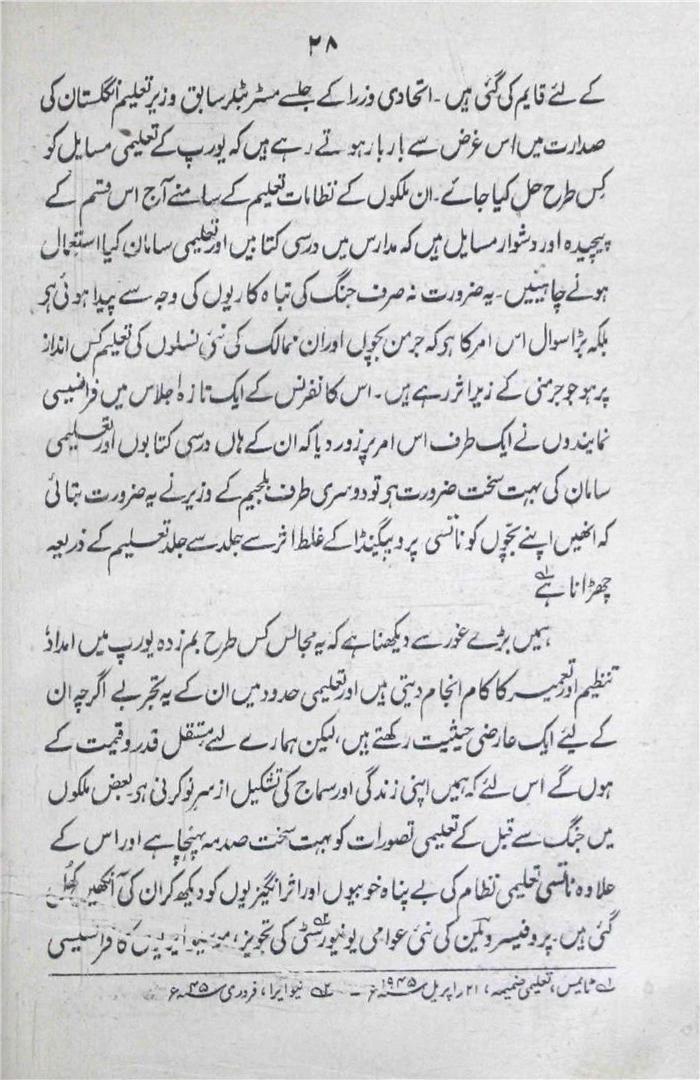 ۲۸
کے لئے قایم کی گئی ہیں ۔ اتحادی وزرا کے جلسے مسٹر بٹلر سابق وزیر تعلیم انگلستان کی
صدارت میں اس غرض سے بار بار ہوتے رہے ہیں کہ یورپ کے تعلیمی مسایل کو
کس طرح حل کیا جائے ۔ ان ملکوں کے نظامات تعلیم کے سامنے آج اس قسم کے
پیچیدہ اور دشوار مسایل ہیں کہ مدارس میں درسی کتابیں اور تعلیمی سامان کیا استعمال
ہونے چاہییں ۔ یہ ضرورت نہ صرف جنگ کی تباہ کاریوں کی وجہ سے پیدا ہوئی ہو
بلکہ بڑا سوال اس امر کا ہو کہ جرمن بچوں اور ان ممالک کی نئی نسلوں کی تعلیم کس انداز
پر ہو جو جرمنی کے زیر اثر رہے ہیں ۔ اس کانفرنس کے ایک تازہ اجلاس میں فرانسیسی
نمایندوں نے ایک طرف اس امر پر زور دیا کہ ان کے ہاں درسی کتابوں اور تعلیمی
سامان کی بہت سخت ضرورت ہو تو دوسری طرف بلجیم کے وزیر نے یہ ضرورت بتائی
کہ انھیں اپنے بچوں کو ناتسی پروپیگنڈا کے غلط اثر سے جلد سے جلد تعلیم کے ذریعہ
چھڑانا ہے ۱؎
ہمیں بڑے غور سے دیکھنا ہے کہ یہ مجالس کس طرح بم زدہ یورپ میں امداد،
تنظیم اور تعمیر کا کام انجام دیتی ہیں اور تعلیمی حدود میں ان کے یہ تجربے اگرچہ ان
کے لیئے ایک عارضی حیثیت رکھتے ہیں، لیکن ہمارے لئے مستقل قدر و قیمت کے
ہوں گے اس لئے کہ ہمیں اپنی زندگی اور سماج کی تشکیل از سر نو کرنی ہو۔ بعض ملکوں
میں جنگ سے قبل کے تعلیمی تصورات کو بہت سخت صدمہ پہنچا ہے اور اس کے
علاوہ ناتسی تعلیمی نظام کی بے پناہ خوبیوں اور اثر انگیزیوں کو دیکھ کر ان کی آنکھیں کھل
گئی ہیں ۔ پروفیسر کی نئی عوامی یونیورسٹی ۲؎ کی تجویز، کا فرانسیسی
۱؎ ٹایمس، تعلیمی ضمیمہ، ۲۱ راپریل سنہ ۱۹۴۵ء ۔ ۲؎ نیو ایرا، فروری سنہ ۴۵ء